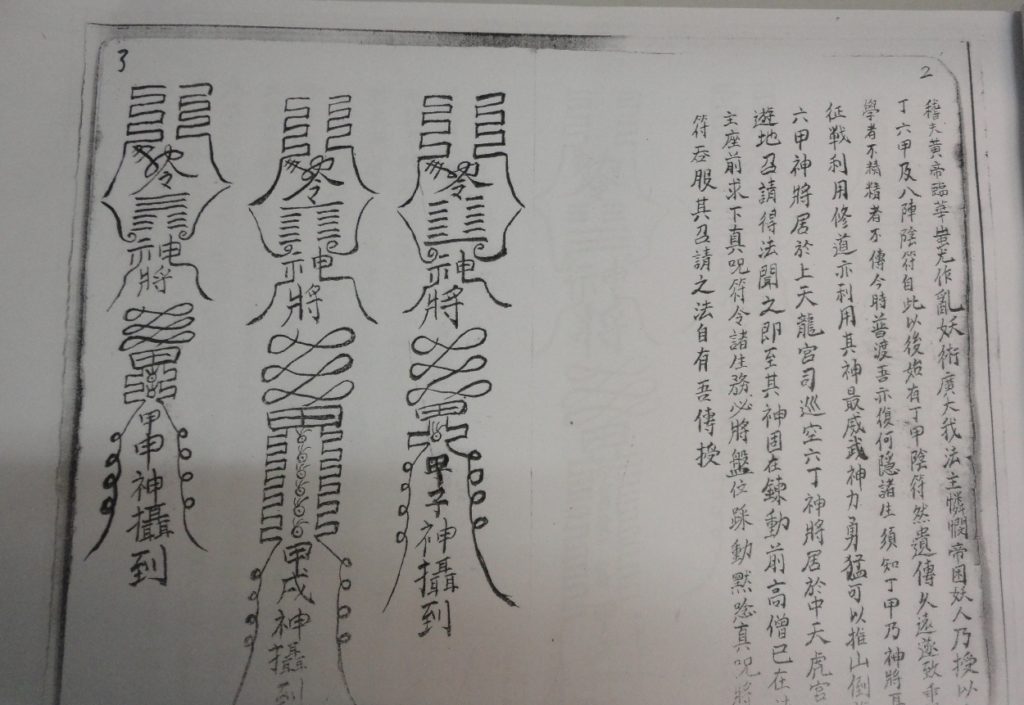 2
稽夫黃帝臨華蚩尤作亂妖術廣大我法主憐憫帝困妖人乃授以
丁六甲及八陣陰符自此以後始有丁甲陰符然遺傳久遠遂致乖
學者不精精者不傳今時普渡吾亦復何隱諸生須知丁甲乃神將
征戰利用修道亦利用其神最威武神力勇猛可以推山倒
六甲神將居於上天龍宮司巡空六丁神將居於中天虎宮
遊地召請得法聞之即至其神固在鍊動前高僧已在
主座前求下真咒符令諸生務必將盤位踩動默唸真咒將
符吞服其召請之法自有吾傳授
3
神將
甲子神攝到
神將
甲戌神攝到
神將
甲申神攝到